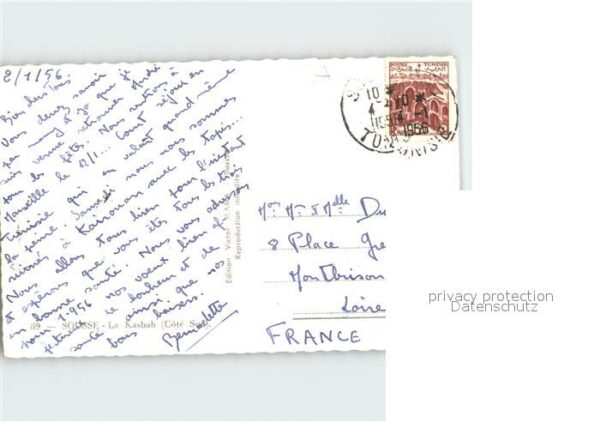 2/1/56
Bien chers tous
Vous devez savoir
par mam que je
suis venue retrouver André
pour les fêtes. Nous rentrons à
Marseille le 12/1... Court séjour en
Tunisie qui en valait quand même
la peine. Samedi nous nous sommes
ruinés à Kairouan avec les tapis...
Nous allons tous bien pour l'instant
et espérons que vous êtes tous les
en bonne santé. Nous vous adressons
pour 1.956 nos voeux bien
de bonheur et de
santé ainsi que nos
bons baisers.
Bernadette
89 - SOUSSE - La Kasbah (Côté Sud)
Edition Victor
Reproduction interdite
POSTES TUNISIE
10 *
4 -1
1956
TUNISIE
Mr Mme & Melle Du
8 Place Gre
Montbrison
Loire
FRANCE
privacy protection
Datenschutz